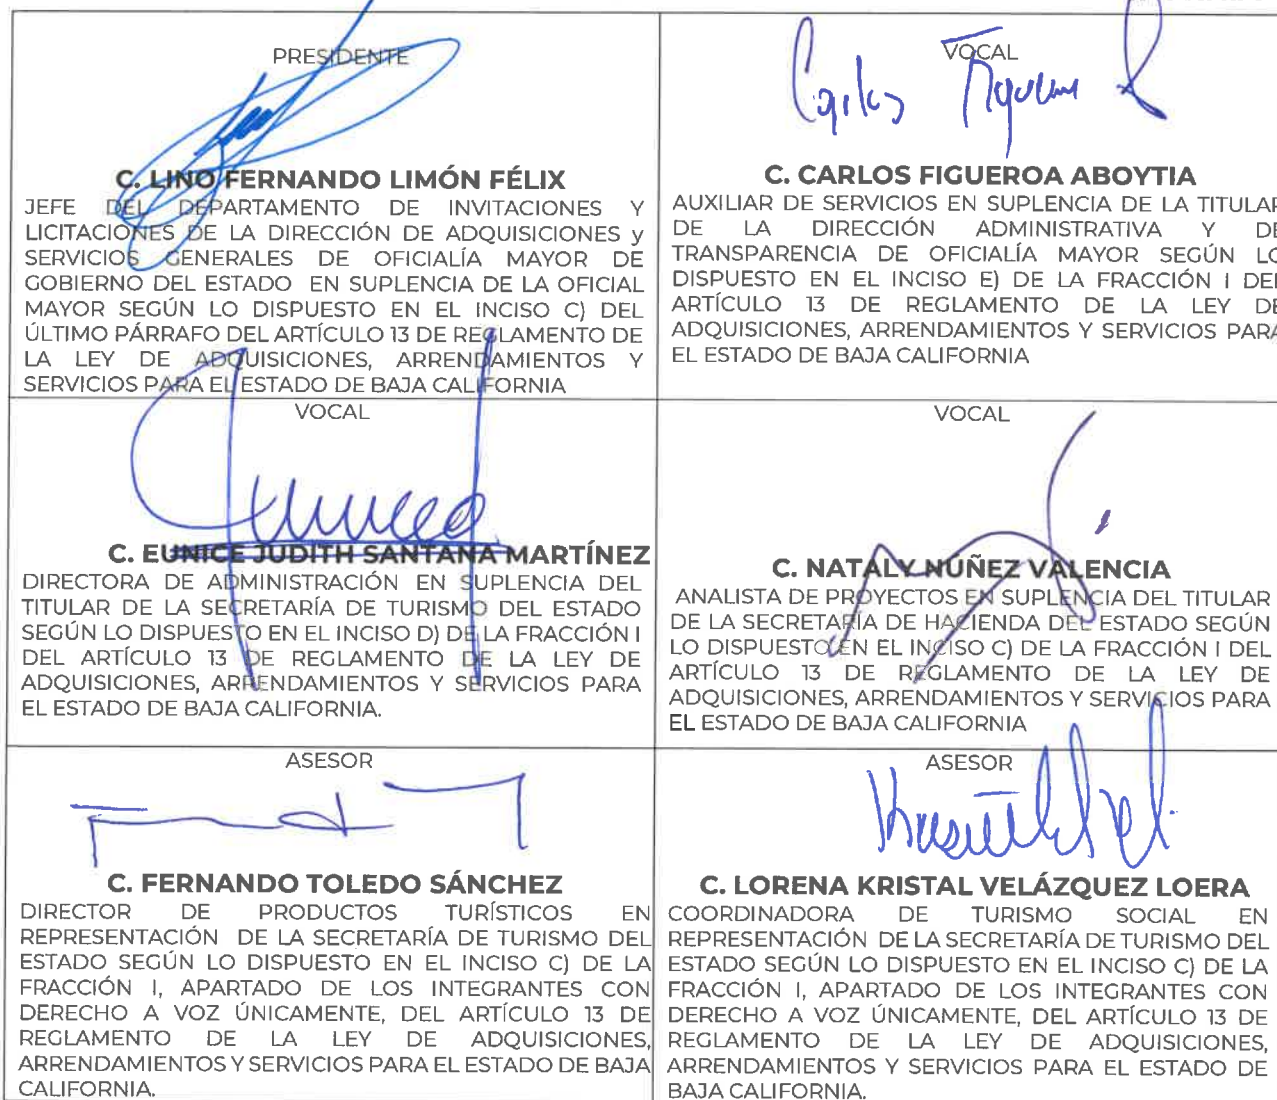 PRESIDENTE
C. LINO FERNANDO LIMÓN FÉLIX
JEFE DEL DEPARTAMENTO DE INVITACIONES Y
LICITACIONES DE LA DIRECCIÓN DE ADQUISICIONES y
SERVICIOS GENERALES DE OFICIALÍA MAYOR DE
GOBIERNO DEL ESTADO EN SUPLENCIA DE LA OFICIAL
MAYOR SEGÚN LO DISPUESTO EN EL INCISO C) DEL
ÚLTIMO PÁRRAFO DEL ARTÍCULO 13 DE REGLAMENTO DE
LA LEY DE ADQUISICIONES, ARRENDAMIENTOS Y
SERVICIOS PARA EL ESTADO DE BAJA CALIFORNIA
VOCAL
Carlos Figueroa
C. CARLOS FIGUEROA ABOYTIA
AUXILIAR DE SERVICIOS EN SUPLENCIA DE LA TITULAR
DE LA DIRECCIÓN ADMINISTRATIVA Y DE
TRANSPARENCIA DE OFICIALÍA MAYOR SEGÚN LO
DISPUESTO EN EL INCISO E) DE LA FRACCIÓN I DEL
ARTÍCULO 13 DE REGLAMENTO DE LA LEY DE
ADQUISICIONES, ARRENDAMIENTOS Y SERVICIOS PARA
EL ESTADO DE BAJA CALIFORNIA
VOCAL
C. EUNICE JUDITH SANTANA MARTÍNEZ
DIRECTORA DE ADMINISTRACIÓN EN SUPLENCIA DEL
TITULAR DE LA SECRETARÍA DE TURISMO DEL ESTADO
SEGÚN LO DISPUESTO EN EL INCISO D) DE LA FRACCIÓN I
DEL ARTÍCULO 13 DE REGLAMENTO DE LA LEY DE
ADQUISICIONES, ARRENDAMIENTOS Y SERVICIOS PARA
EL ESTADO DE BAJA CALIFORNIA.
VOCAL
C. NATALY NÚÑEZ VALENCIA
ANALISTA DE PROYECTOS EN SUPLENCIA DEL TITULAR
DE LA SECRETARÍA DE HACIENDA DEL ESTADO SEGÚN
LO DISPUESTO EN EL INCISO C) DE LA FRACCIÓN I DEL
ARTÍCULO 13 DE REGLAMENTO DE LA LEY DE
ADQUISICIONES, ARRENDAMIENTOS Y SERVICIOS PARA
EL ESTADO DE BAJA CALIFORNIA
ASESOR
C. FERNANDO TOLEDO SÁNCHEZ
DIRECTOR DE PRODUCTOS TURÍSTICOS EN
REPRESENTACIÓN DE LA SECRETARÍA DE TURISMO DEL
ESTADO SEGÚN LO DISPUESTO EN EL INCISO C) DE LA
FRACCIÓN I, APARTADO DE LOS INTEGRANTES CON
DERECHO A VOZ ÚNICAMENTE, DEL ARTÍCULO 13 DE
REGLAMENTO DE LA LEY DE ADQUISICIONES,
ARRENDAMIENTOS Y SERVICIOS PARA EL ESTADO DE BAJA
CALIFORNIA.
ASESOR
C. LORENA KRISTAL VELÁZQUEZ LOERA
COORDINADORA DE TURISMO SOCIAL EN
REPRESENTACIÓN DE LA SECRETARÍA DE TURISMO DEL
ESTADO SEGÚN LO DISPUESTO EN EL INCISO C) DE LA
FRACCIÓN I, APARTADO DE LOS INTEGRANTES CON
DERECHO A VOZ ÚNICAMENTE, DEL ARTÍCULO 13 DE
REGLAMENTO DE LA LEY DE ADQUISICIONES,
ARRENDAMIENTOS Y SERVICIOS PARA EL ESTADO DE
BAJA CALIFORNIA.